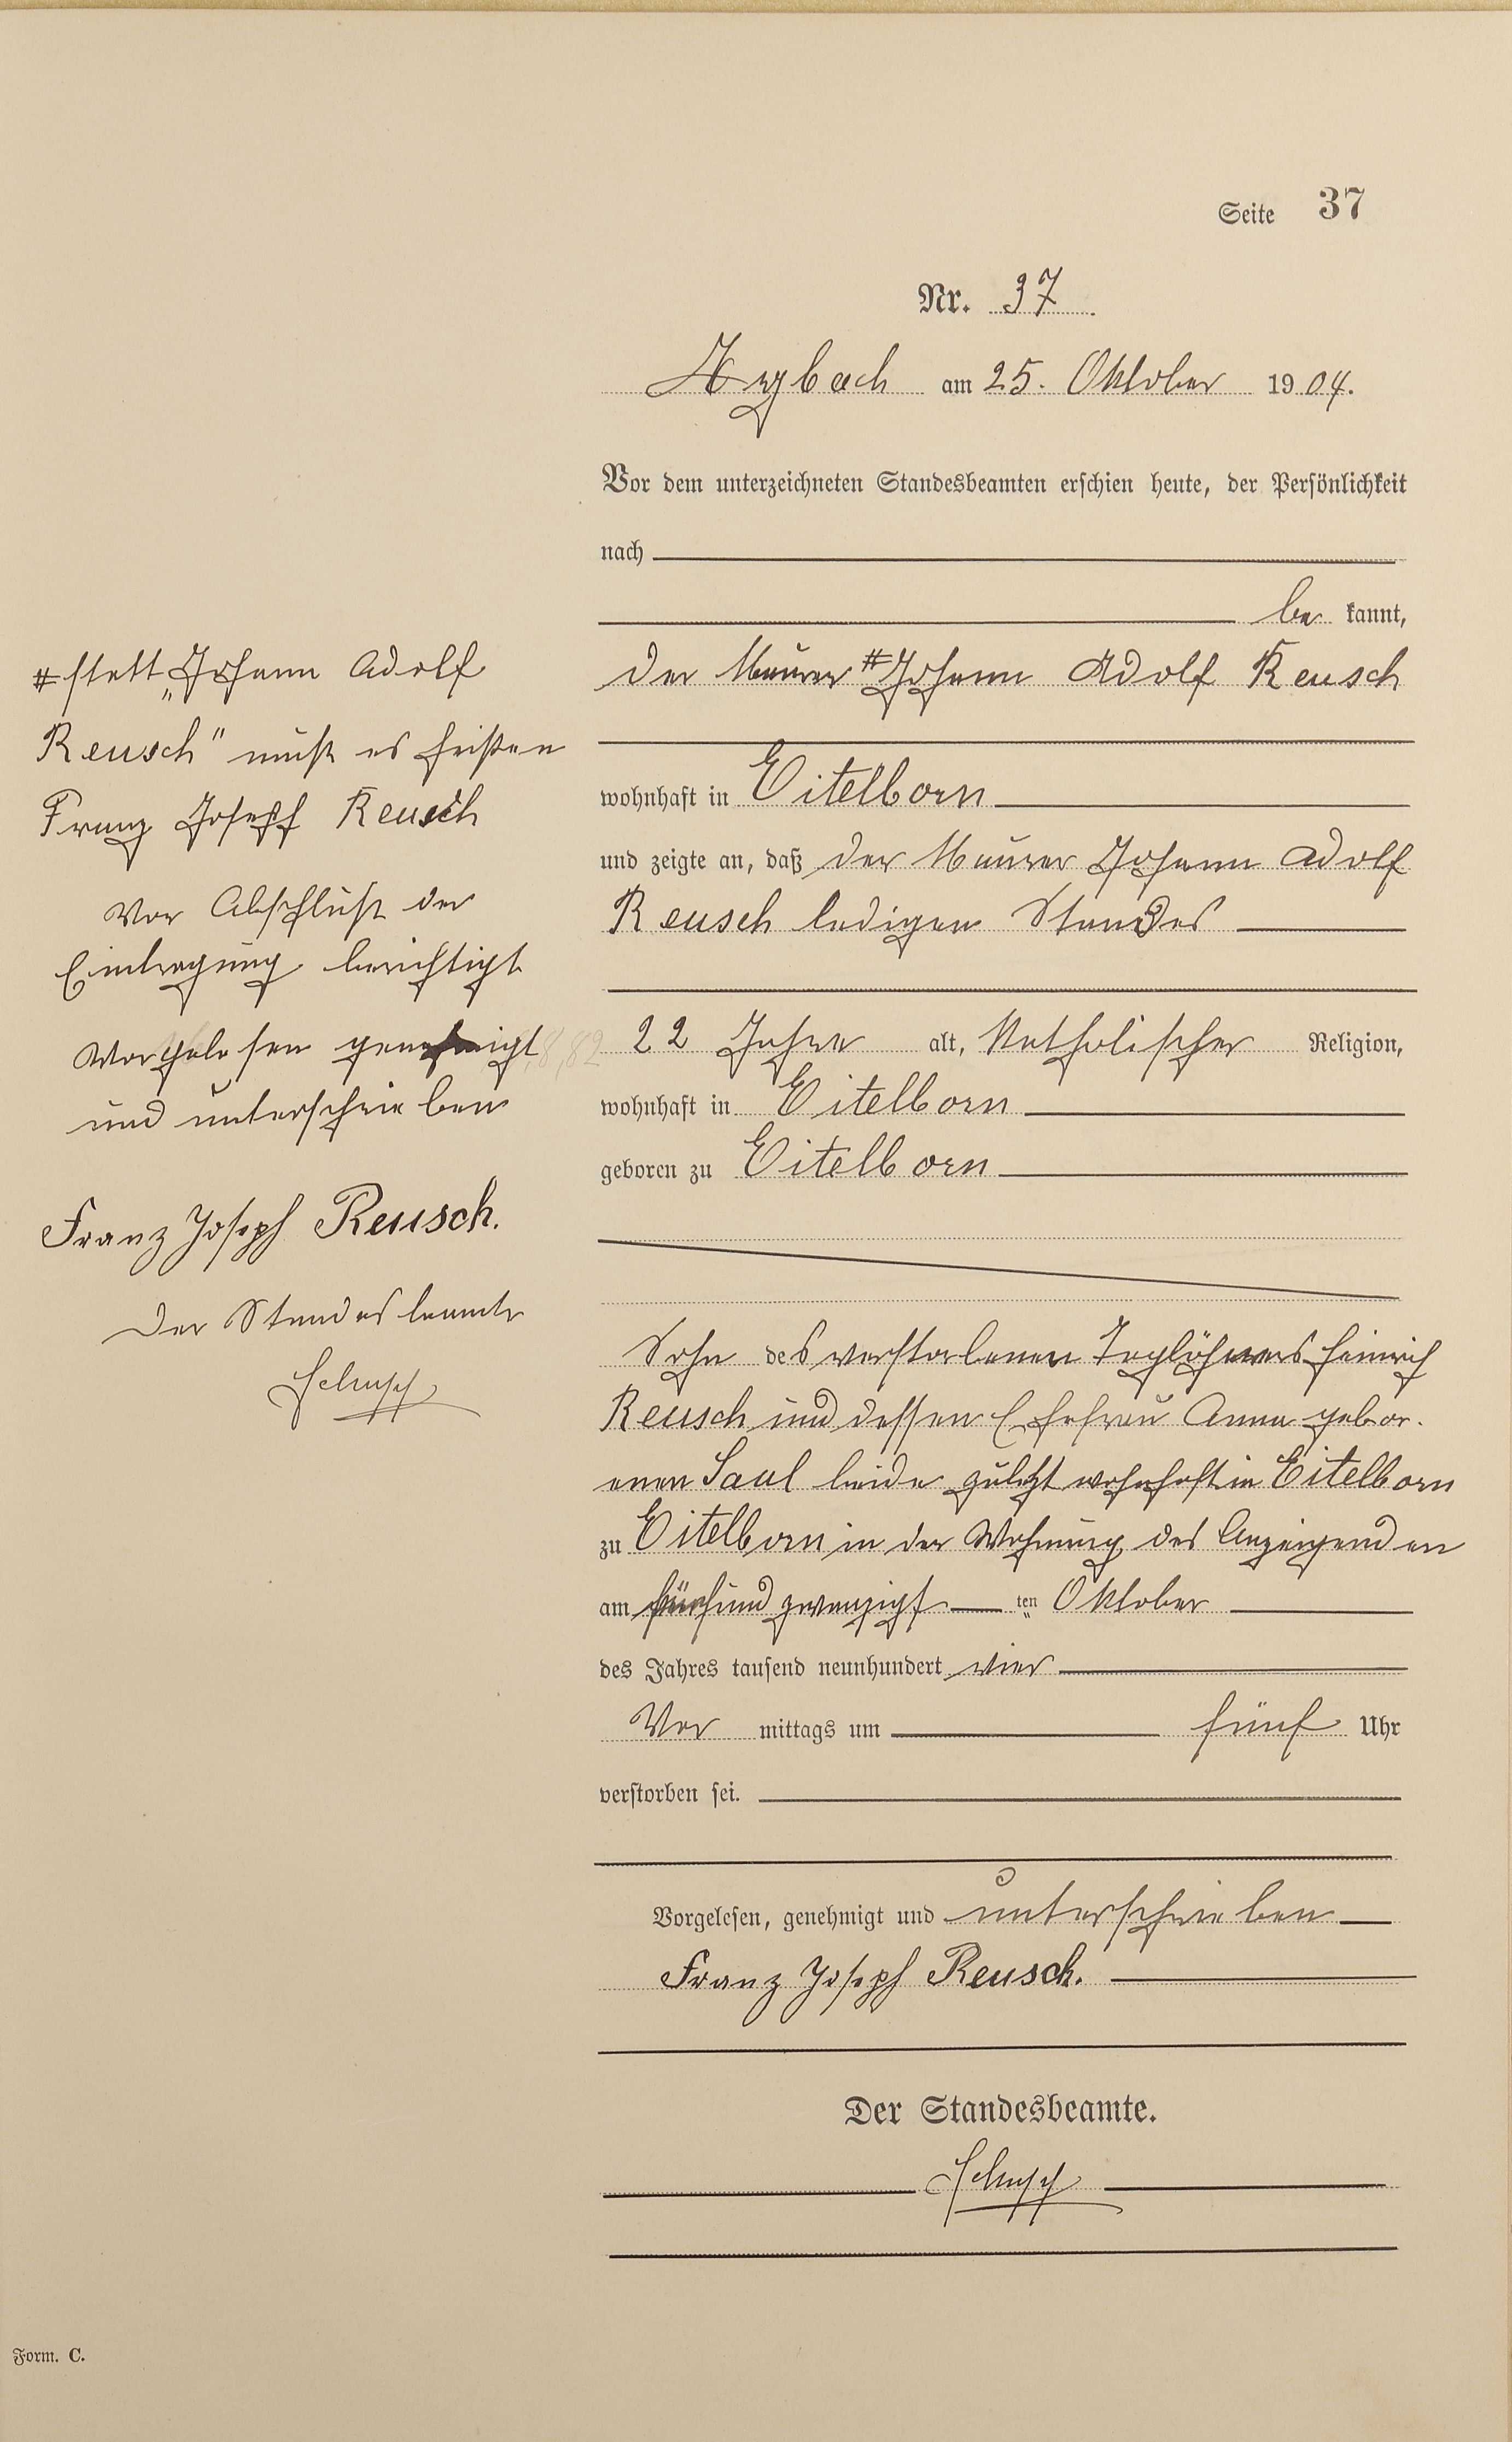 Seite 37
Nr. 37
Arzbach am 25. Oktober 1904.
Vor dem unterzeichneten Standesbeamten erschien heute, der Persönlichkeit
nach
be kannt,
der Maurer # Johann Adolf Reusch
wohnhaft in Eitelborn
und zeigte an, daß der Maurer Johann Adolf
Reusch ledigen Standes
22 Jahre alt, Katholischer Religion,
wohnhaft in Eitelborn
geboren zu Eitelborn
Sohn des verstorbenen Taglöhners Heinrich
Reusch und dessen Ehefrau Anna gebor.
enen Saul beide zuletzt wohnhaft in Eitelborn
zu Eitelborn in der Wohnung des Anzeigenden
am fünfundzwanzigst ten Oktober
des Jahres tausend neunhundert vier
Vor mittags um fünf Uhr
verstorben sei.
Vorgelesen, genehmigt und unterschrieben
Franz Joseph Reusch.
Der Standesbeamte.
# statt „Johann Adolf
Reusch" muß es heißen
Franz Joseph Reusch
Vor Abschluß der
Eintragung berichtigt
Vorgelesen genehmigt
und unterschrieben
Franz Joseph Reusch.
Der Standesbeamte
Form. C.